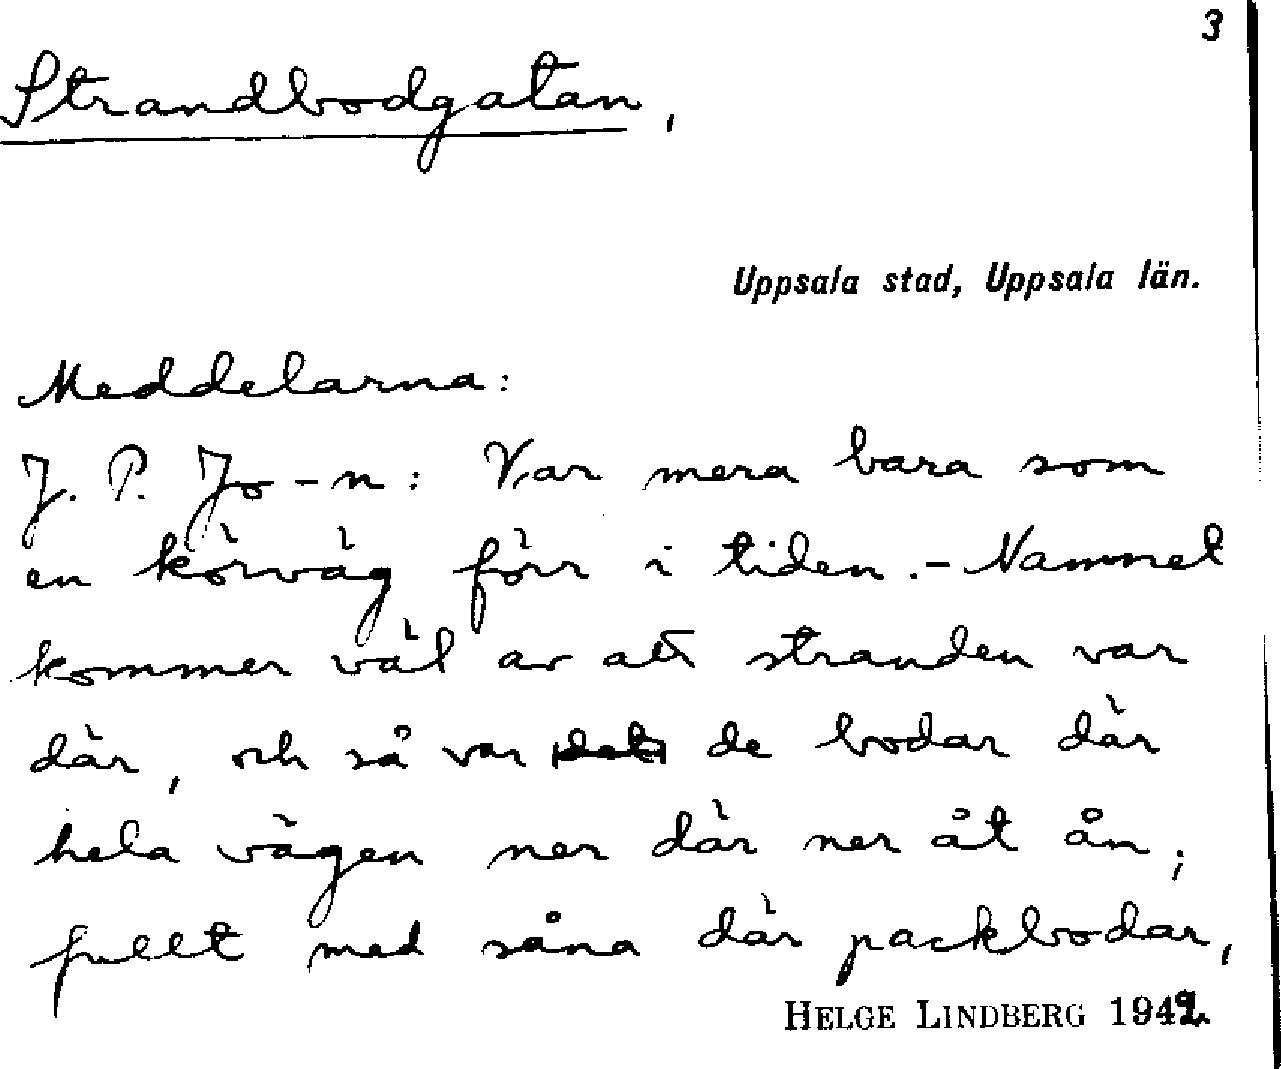 3
Strandbodgatan,
Uppsala stad, Uppsala län.
Meddelarna:
J. P. Jo-n: Var mera bara som
en körväg förr i tiden.- Namnet
kommer väl av att stranden var
där, och så var de bodar där
hela vägen ner där ner åt ån;
fullt med såna där packbodar,
HELGE LINDBERG 1942